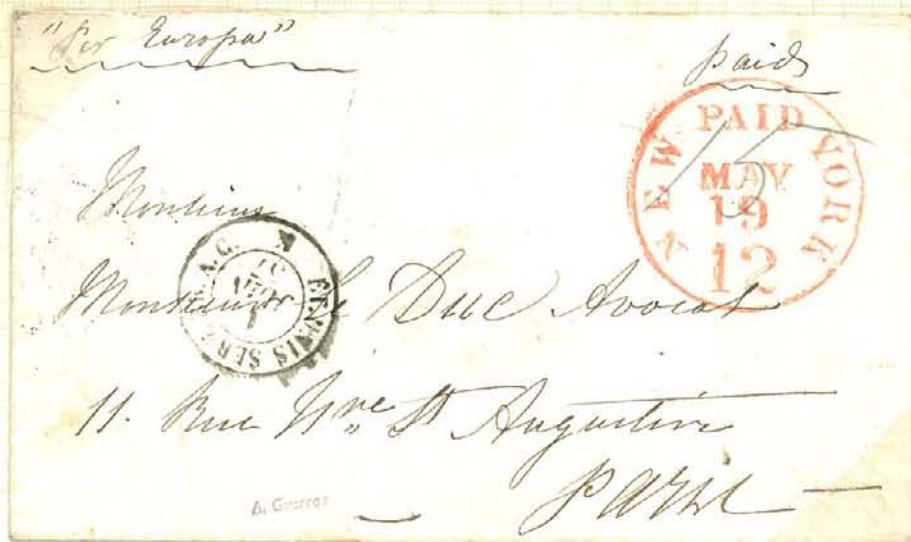 "Per Europa"
Paid
NEW YORK
PAID
MAY
19
12
15
Monsieur
Monsieur Le Duc Avocat
ET. UNIS SER
A.C.
11. Rue Nve St Augustin
Paris
A. Guerraz